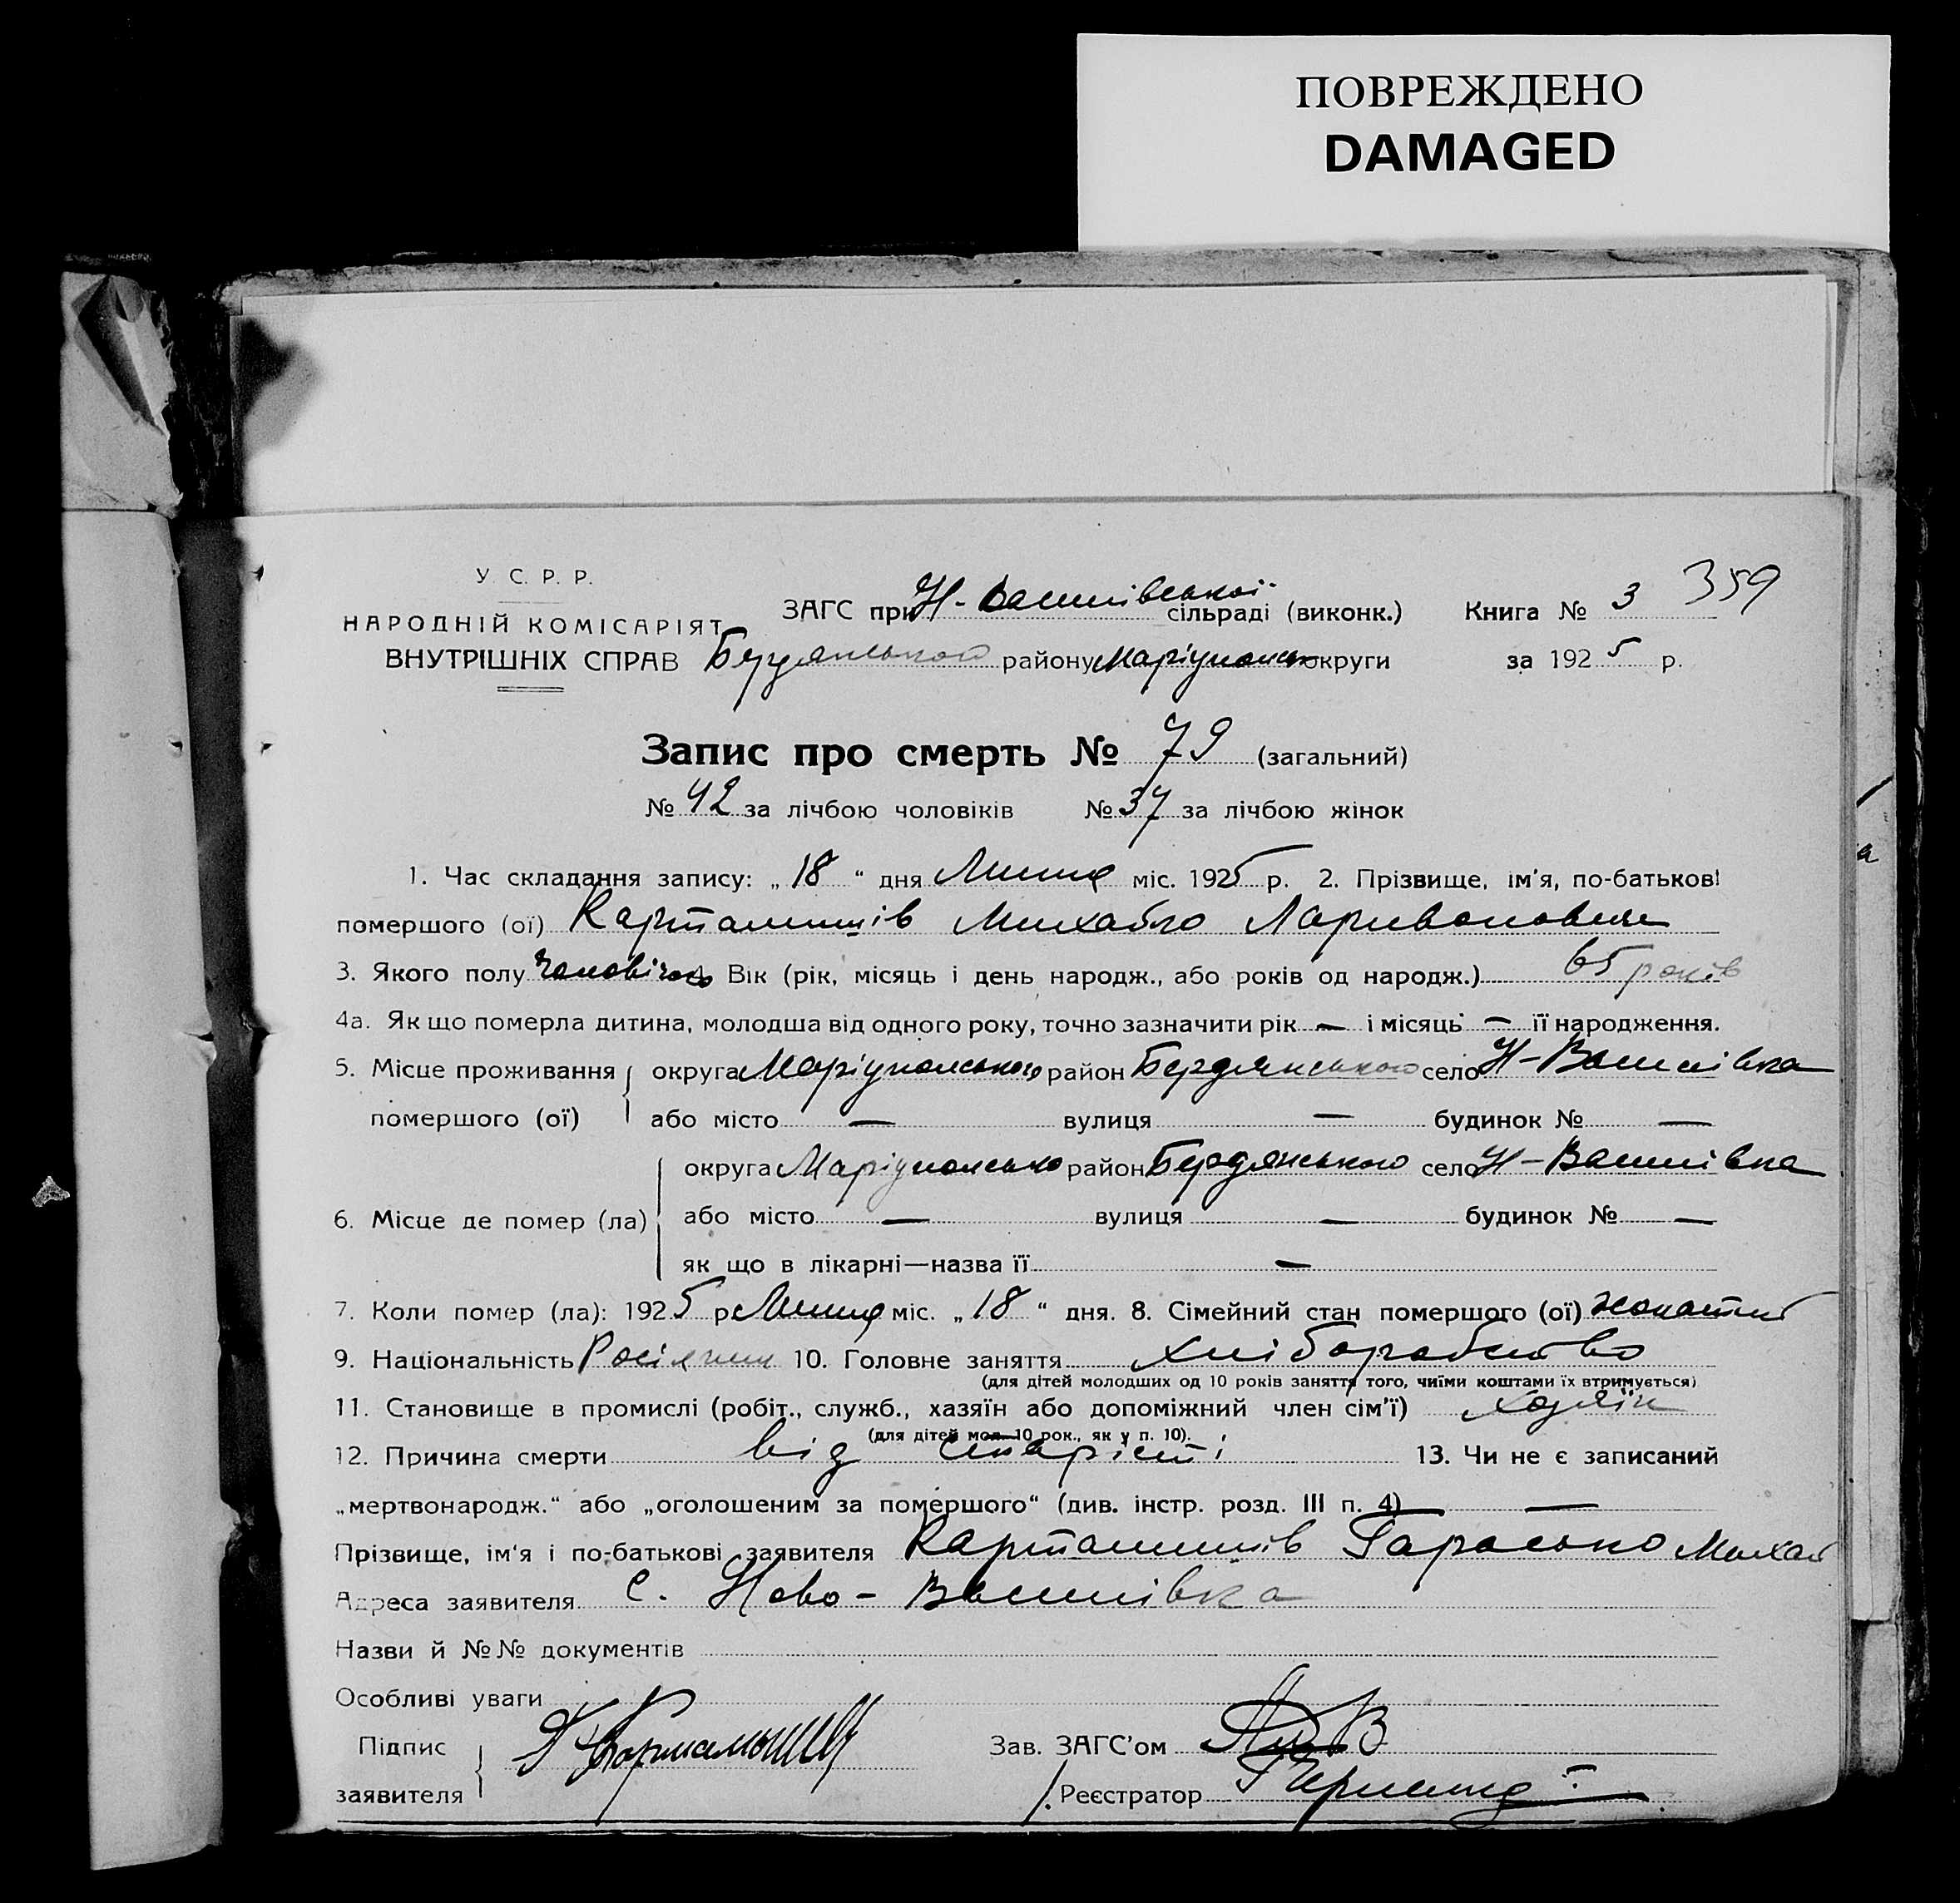 ПОВРЕЖДЕНО
DAMAGED
У. С. Р. Р.
НАРОДНІЙ КОМІСАРІЯТ
ВНУТРІШНІХ СПРАВ
ЗАГС при Н-Василівської сільраді (виконк.) Книга № 3 359
Бердянського району Маріупольсь округи за 1925 р.
Запис про смерть № 79 (загальний)
№ 42 за лічбою чоловіків № 37 за лічбою жінок
1. Час складання запису: „18“ дня Липня міс. 1925 р. 2. Прізвище, ім'я, по-батькові
помершого (ої) Карталишів Михайло Ларивонович
3. Якого полу чоловічого 4. Вік (рік, місяць і день народж., або років од народж.) 65 років
4а. Як що померла дитина, молодша від одного року, точно зазначити рік — і місяць — її народження.
5. Місце проживання помершого (ої) округа Маріупольського район Бердянського село Н-Василівка
або місто — вулиця — будинок № —
6. Місце де помер (ла) округа Маріупольсько район Бердянського село Н-Василівка
або місто — вулиця — будинок № —
як що в лікарні—назва її —
7. Коли помер (ла): 1925 р. Липня міс. „18“ дня. 8. Сімейний стан помершого (ої) жонатий
9. Національність Росіянин 10. Головне заняття Хліборобство
(для дітей молодших од 10 років заняття того, чиїми коштами їх втримується)
11. Становище в промислі (робіт., служб., хазяїн або допоміжний член сім'ї) хазяїн
(для дітей мол. 10 рок., як у п. 10).
12. Причина смерти від старісті 13. Чи не є записаний
„мертвонародж.“ або „оголошеним за помершого“ (див. інстр. розд. III п. 4) —
Прізвище, ім'я і по-батькові заявителя Карталишів Гарасько Михай
Адреса заявителя с. Ново-Василівка
Назви й №№ документів
Особливі уваги
Підпис заявителя
Зав. ЗАГС'ом
Реєстратор